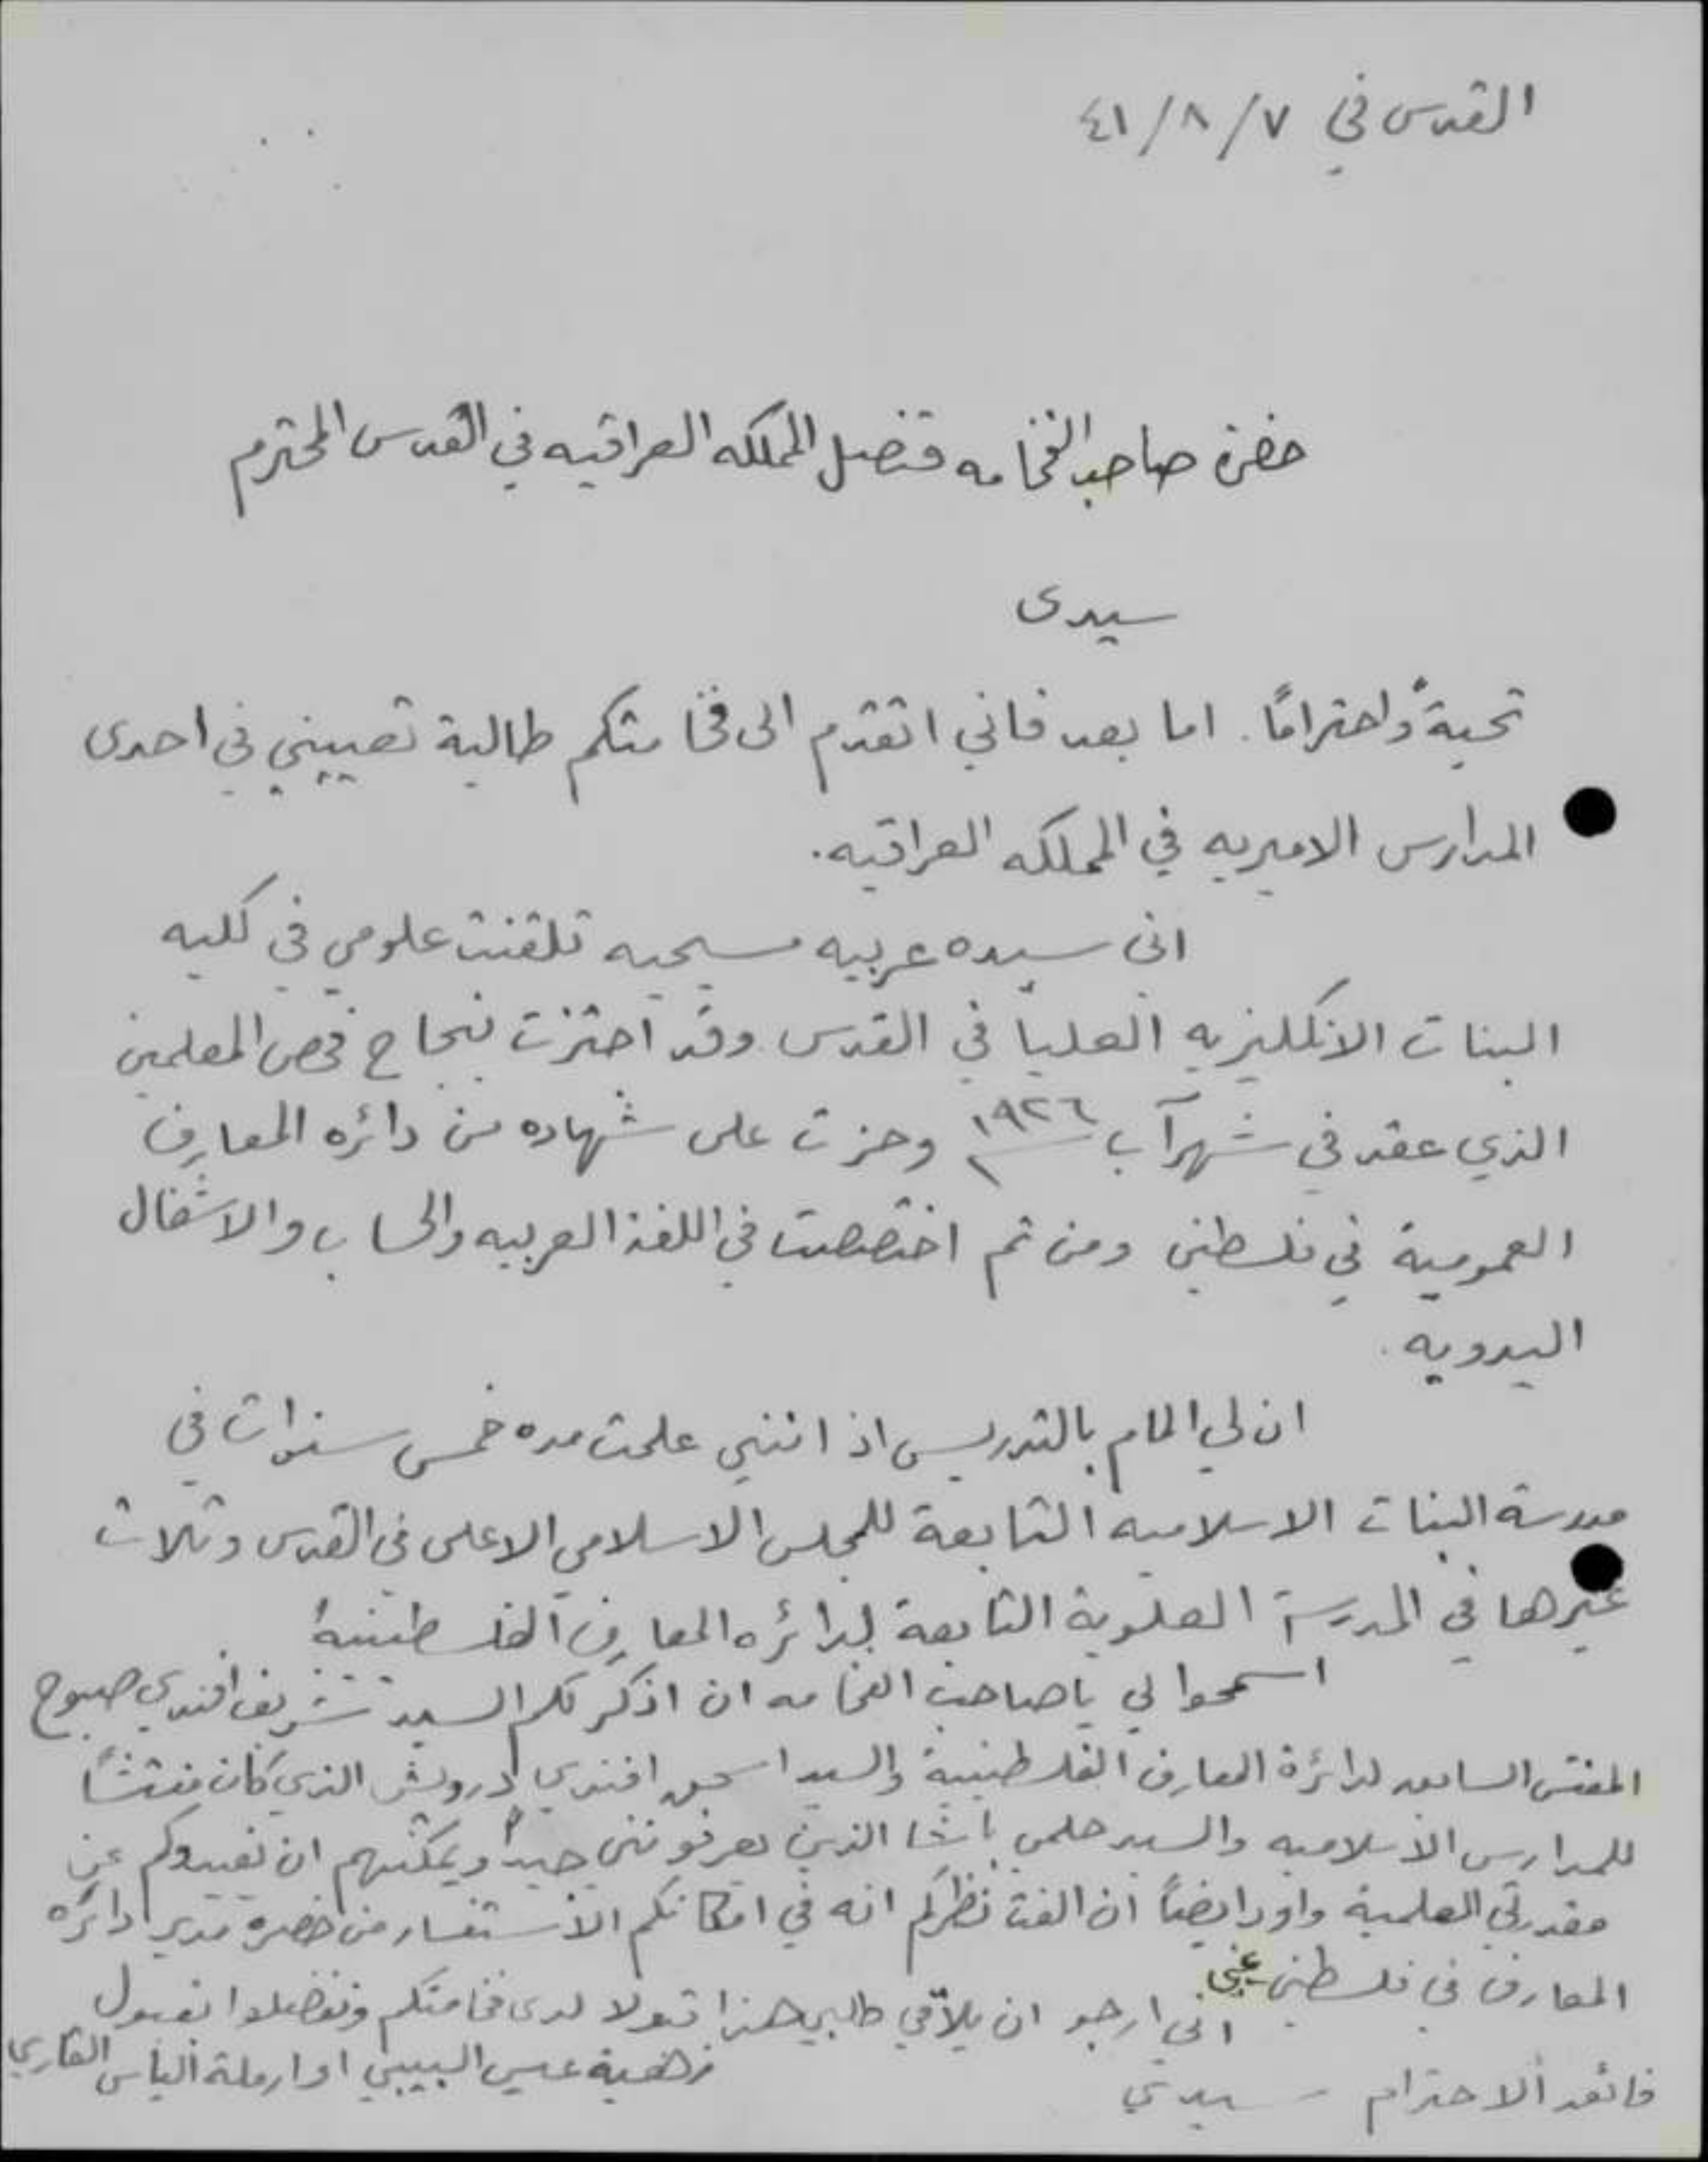 القدس في ٤١/٨/٧
حضرة صاحب الفخامه قنصل المملكه العراقيه في القدس المحترم
سيدى
تحيةً واحترامًا. اما بعد فاني اتقدم الى فخامتكم طالبة تعييني في احدى
المدارس الاميريه في المملكه العراقيه.
انى سيده عربيه مسيحيه تلقنت علومي في كليه
البنات الانكليزيه العليا في القدس وقد اجتزت بنجاح فحص المعلمين
الذي عقد في شهر آب ١٩٢٦ وحزت على شهاده من دائره المعارف
العمومية في فلسطين ومن ثم اختصصت في اللغة العربيه والحساب والاشغال
اليدويه.
ان لي المام بالتدريس اذ انني علمت مده خمس سنوات في
مدرسة البنات الاسلاميه التابعة للمجلس الاسلامي الاعلى في القدس وثلاث
غيرها في المدرسة العلوية التابعة لدائره المعارف الفلسطينية
اسمحوا لي يا صاحب الفخامه ان اذكر لكم السيد شريف افندي صبوح
المفتش السابق لدائرة المعارف الفلسطينية والسيد اسحق افندي درويش الذي كان مفتشًا
للمدارس الاسلاميه والسيد حلمي باشا الذين يعرفونني جيدًا ويمكنهم ان يفيدوكم عن
مقدرتي العلمية واود ايضًا ان الفت نظركم انه في امكانكم الاستفسار من حضرة مدير دائره
المعارف في فلسطين عني.
اني ارجو ان يلاقي طلبي هذا قبولا لدى فخامتكم وتفضلوا بقبول
فائق الاحترام سيدي
زهية عيسى البيبي ارملة الياس القاري